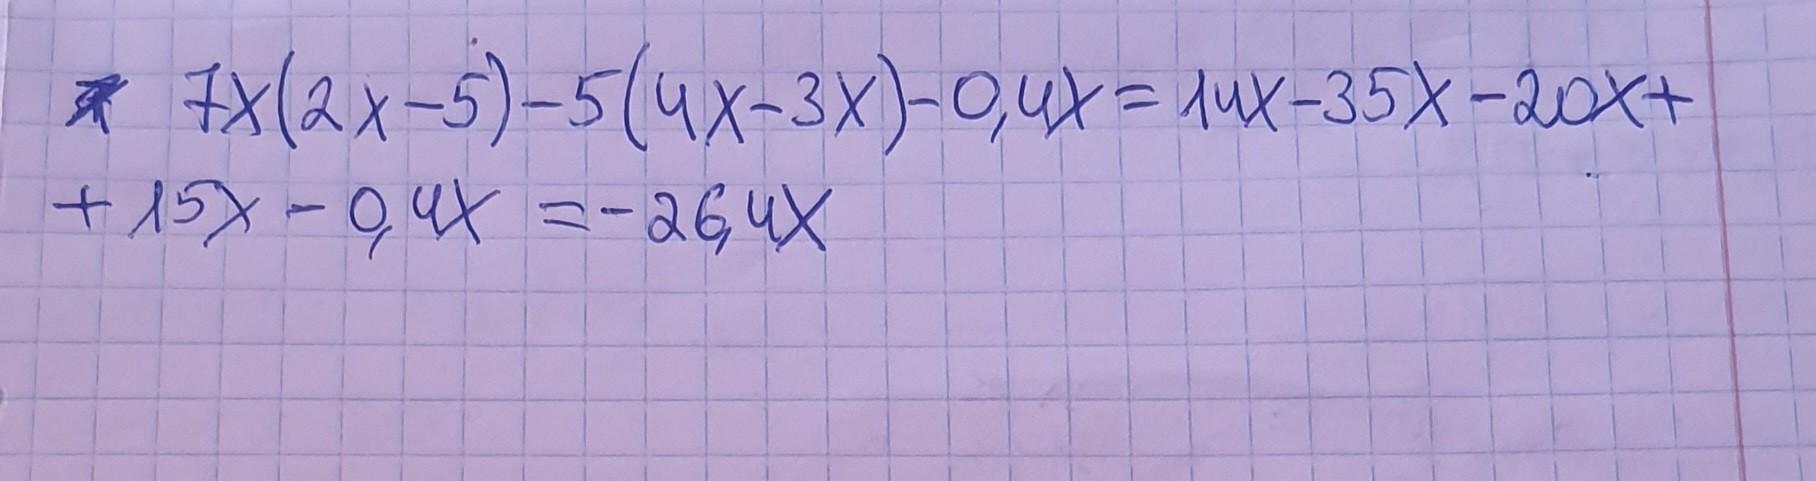 7x(2x-5)-5(4x-3x)-0,4x=14x-35x-20x+
+15x-0,4x=-26,4x